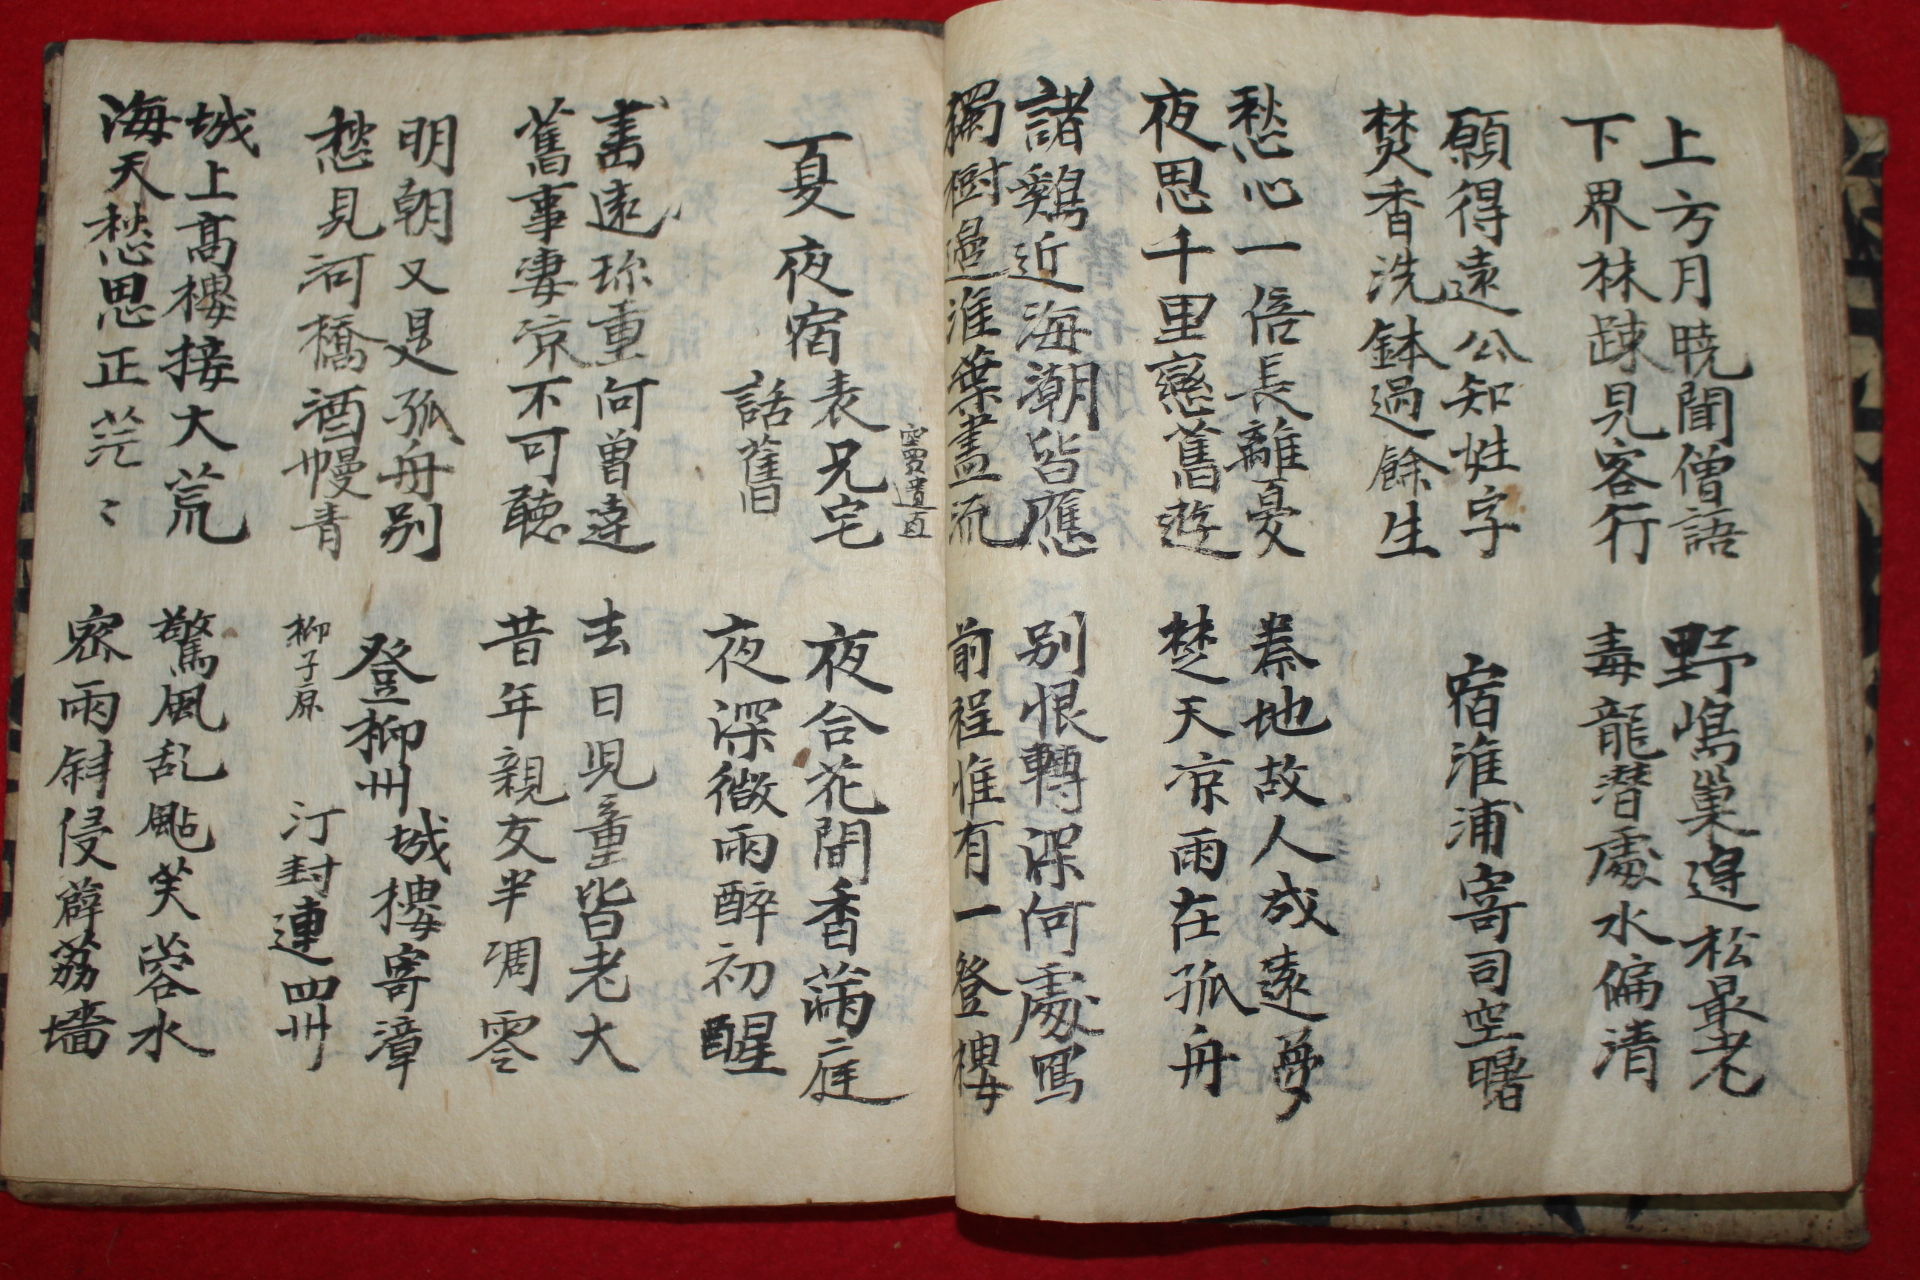 上方月曉聞僧語
下界林疎見客行
野嶋巢邊松最老
毒龍潛處水偏清
願得遠公知姓字
焚香洗鉢過餘生
宿淮浦寄司空曙
愁心一倍長離憂
夜思千里戀舊遊
秦地故人成遠夢
楚天凉雨在孤舟
諸鷄近海潮皆應
獨樹邊淮葉盡流
別恨轉深何處寫
前程惟有一登樓
竇遺直
夏夜宿表兄宅
話舊
夜合花間香滿庭
夜深微雨醉初醒
書遠珎重何曾達
舊事凄凉不可聽
去日児童皆老大
昔年親友半凋零
明朝又是孤舟別
愁見河橋酒幔青
登柳州城樓寄漳
汀封連四州
柳子原
城上高樓接大荒
海天愁思正茫〻
驚風乱颭芙蓉水
密雨斜侵薜荔墻